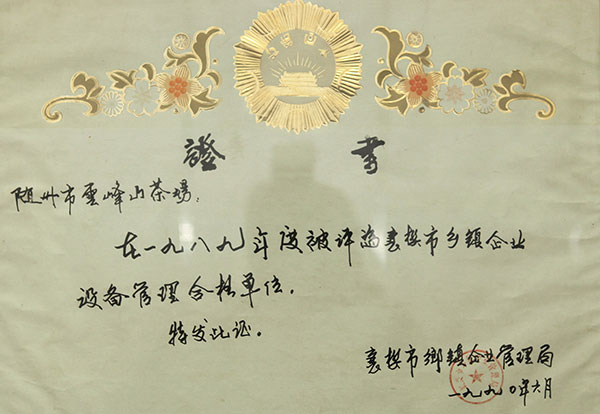 證書
随州市雲峰山茶場：
在一九八九年度被评为襄樊市乡镇企业
设备管理合格单位。
特发此证。
襄樊市鄉鎮企业管理局
一九九〇年六月